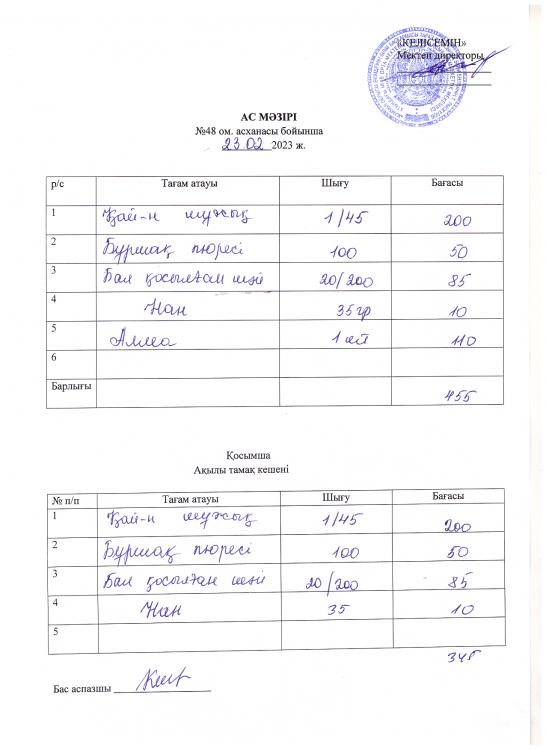 «КЕЛІСЕМІН»
Мектеп директоры
АС МӘЗІРІ
№48 ом. асханасы бойынша
23.02 2023 ж.
р/с Тағам атауы Шығу Бағасы
1 Қай-н шужық 1/45 200
2 Бұршақ пюресі 100 50
3 Бал қосылған шәй 20/200 85
4 Нан 35 гр 10
5 Алма 1 110
6
Барлығы 455
Қосымша
Ақылы тамақ кешені
№ п/п Тағам атауы Шығу Бағасы
1 Қай-н шужық 1/45 200
2 Бұршақ пюресі 100 50
3 Бал қосылған шәй 20/200 85
4 Нан 35 10
5
345
Бас аспазшы